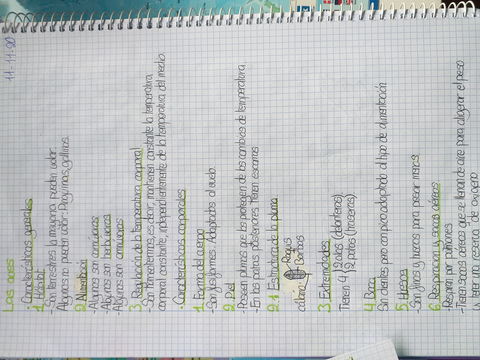 11-11-20
Las aves
· Características generales
1 Hábitat
- Son terrestres la mayoría pueden volar.
Algunos no pueden volar: Pingüinos, gallinas.
2 Nutrición
- Algunas son carnívoras
- Algunas son herbívoras
- Algunas son omnívoras
3 Regulación de la temperatura corporal
- Son homeotermos, es decir, mantienen constante la temperatura
corporal constante, independientemente de la temperatura del medio.
· Características corporales
1 Forma del cuerpo
- Son fusiformes. Adaptados al vuelo.
2 Piel
- Poseen plumas que los protegen de los cambios de temperatura
- En las patas posteriores tienen escamas
2.1 Estructura de la pluma
cálamo
Raquis
Barbas
3 Extremidades
Tienen 4
2 alas (delanteras)
2 patas (traseras)
4 Boca
Sin dientes pero con pico adaptado al tipo de alimentación
5 Huesos
- Son finos y huecos para pesar menos
6 Respiración y sacos aéreos
- Respiran por pulmones
- Tienen sacos aéreos que se llenan de aire para aligerar el peso
y tener una reserva de oxígeno